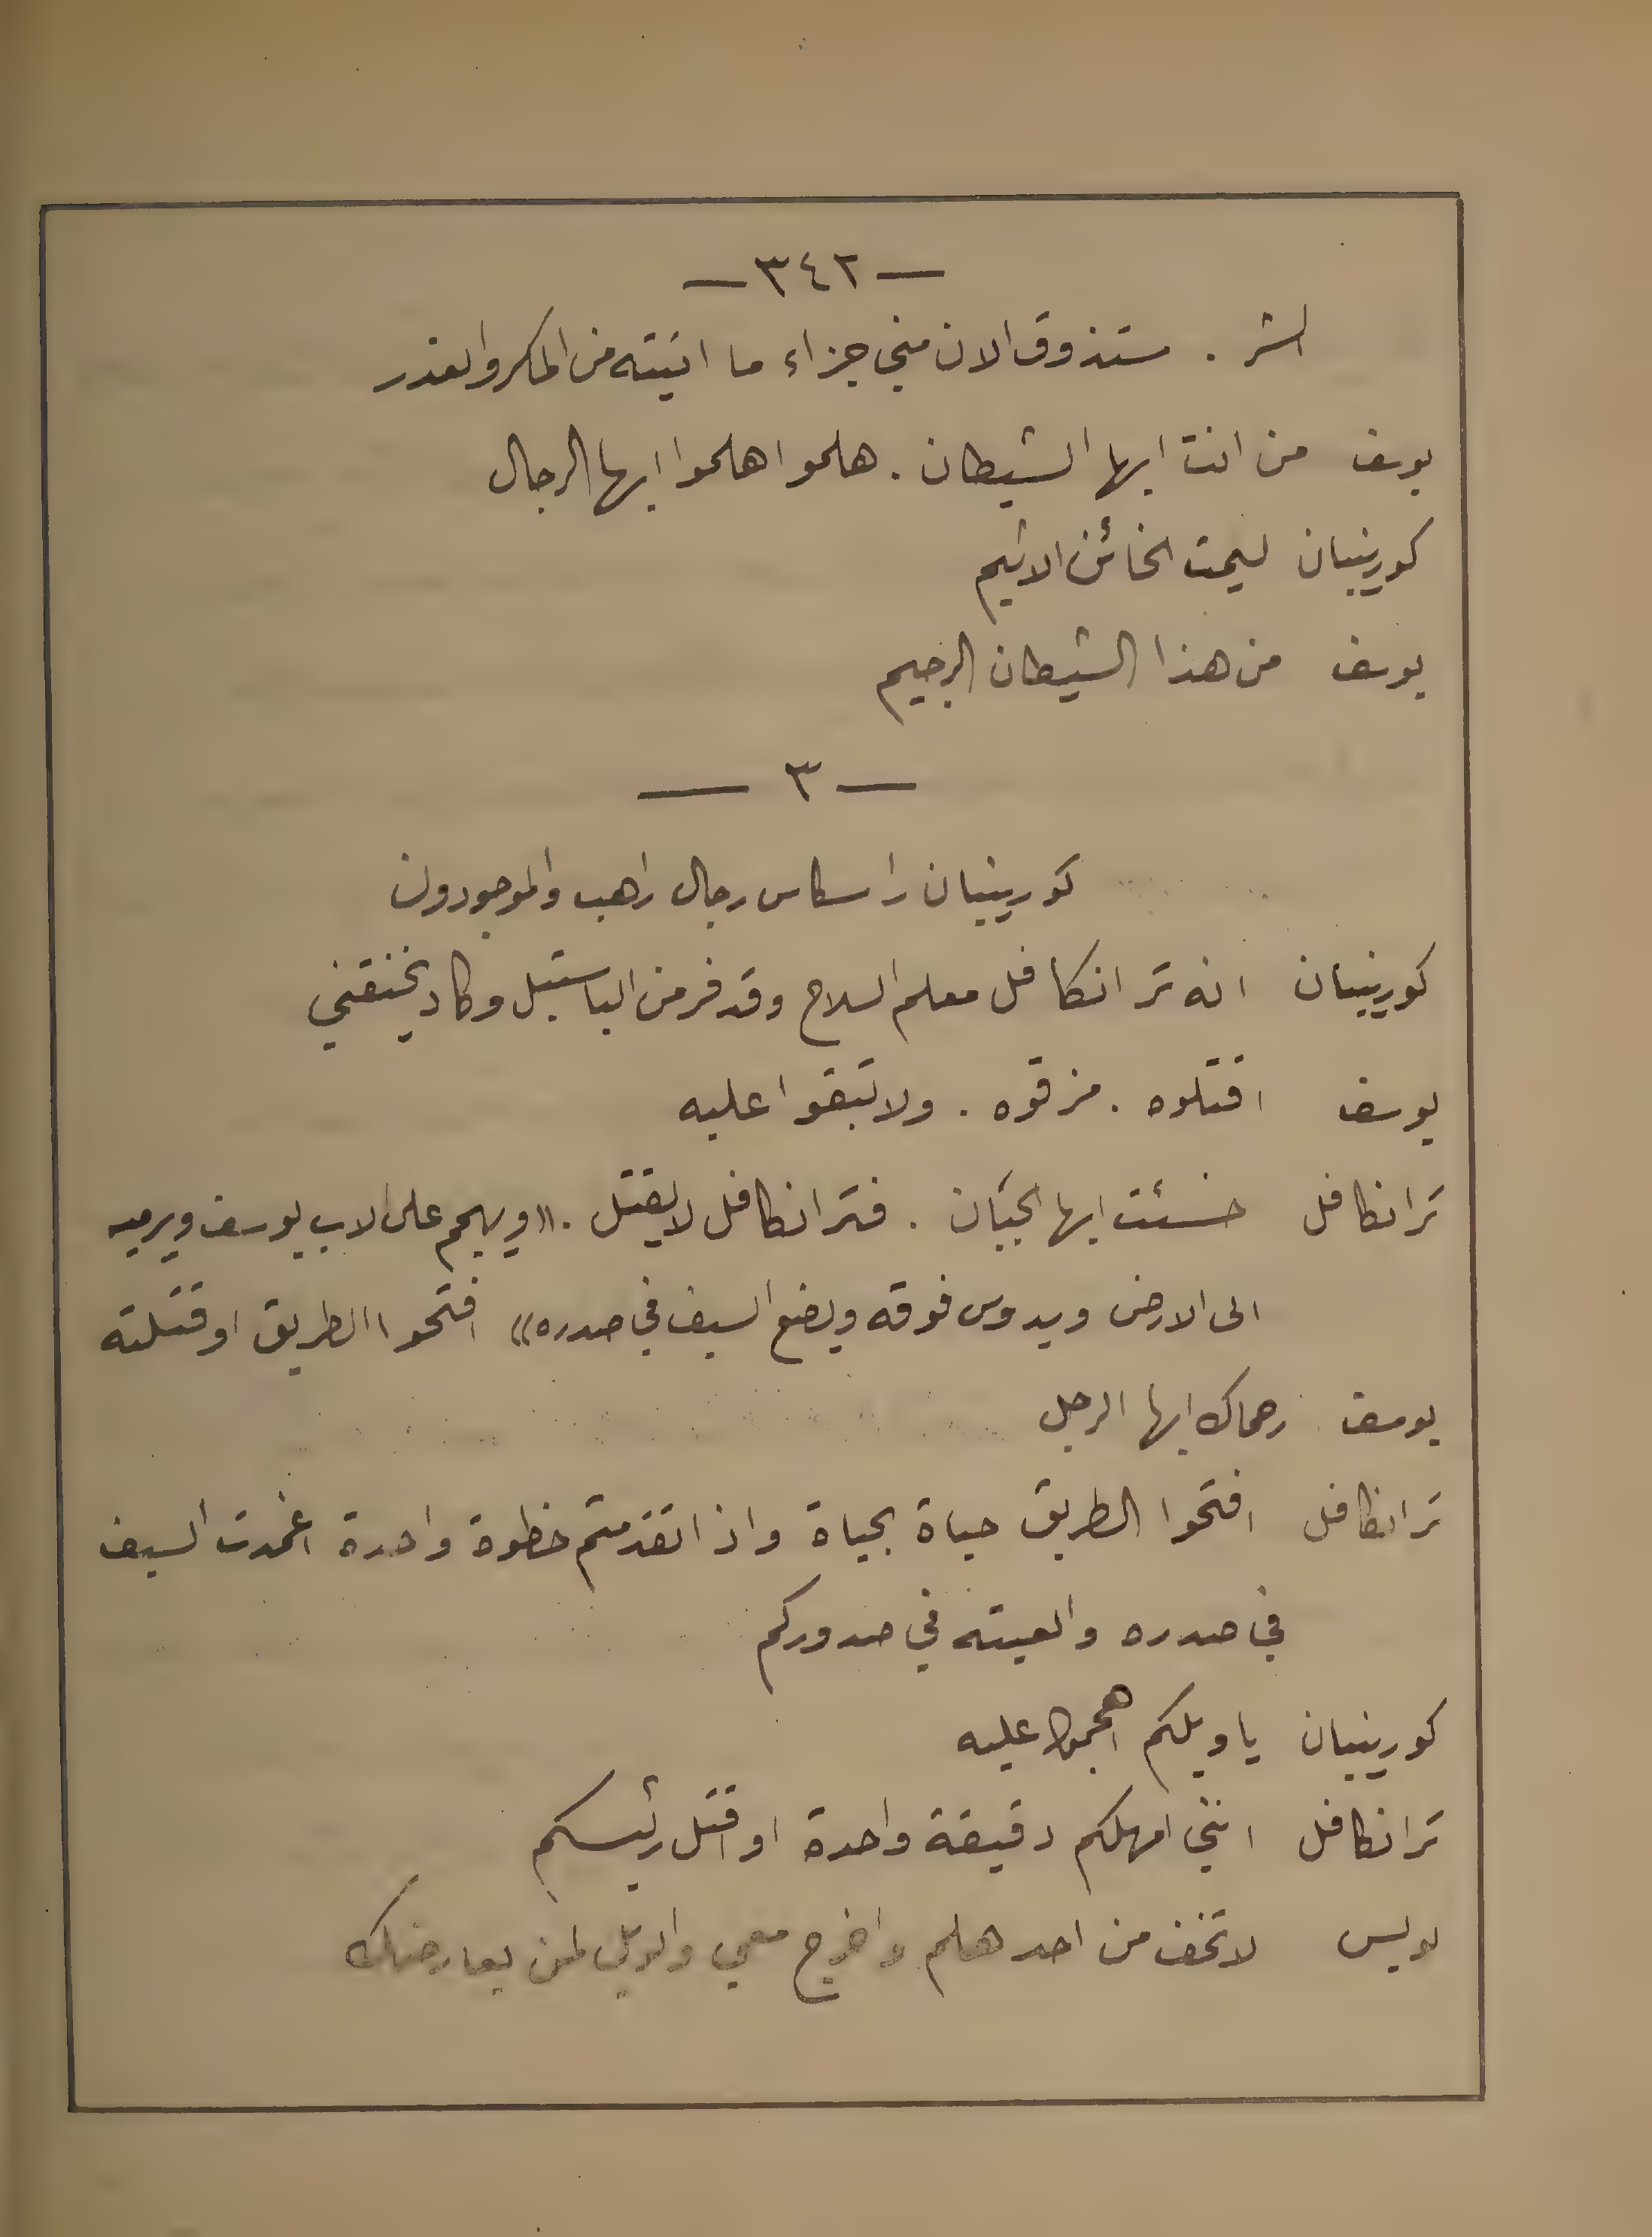 — ٣٤٢ —
الشر . ستذوق الان مني جزاء ما اتيته من المكر والغدر
يوسف من انت ايها الشيطان . هلموا هلموا ايها الرجال
كورينيان ليمت الخائن الاثيم
يوسف من هذا الشيطان الرجيم
— ٣ —
كورينيان راسكاس رجال راهب والموجودون
كورينيان انه ترانكافل معلم السلاح وقد فر من الباستيل وكاد يخنقني
يوسف اقتلوه . مزقوه . ولا تبقوا عليه
ترانكافل خسئت ايها الجبان . فترانكافل لا يقتل . «ويهجم على الاب يوسف ويرميه
الى الارض ويدوس فوقه ويضع السيف في صدره» افتحوا الطريق او قتلته
يوسف رحماك ايها الرجل
ترانكافل افتحوا الطريق حياة بحياة واذا تقدمتم خطوة واحدة اغمدت السيف
في صدره والقيته في صدوركم
كورينيان يا ويلكم اهجموا عليه
ترانكافل انني امهلكم دقيقة واحدة او اقتل رئيسكم
لويس لا تخف من احد هلم واخرج معي والويل لمن يعارضك